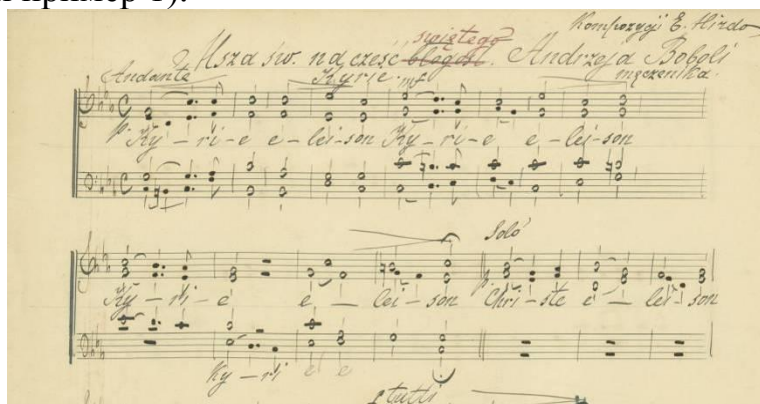 пример 1).
Kompozycji E.
świętego
Msza św. na cześć błogosł. Andrzeja Boboli
męczenika.
Andante Kyrie. mf
p. Ky - ri - e e - lei - son Ky - ri - e e - lei - son
Solo
Ky - ri - e e - lei - son Chri - ste e - lei - son
Ky - ri e e
tutti